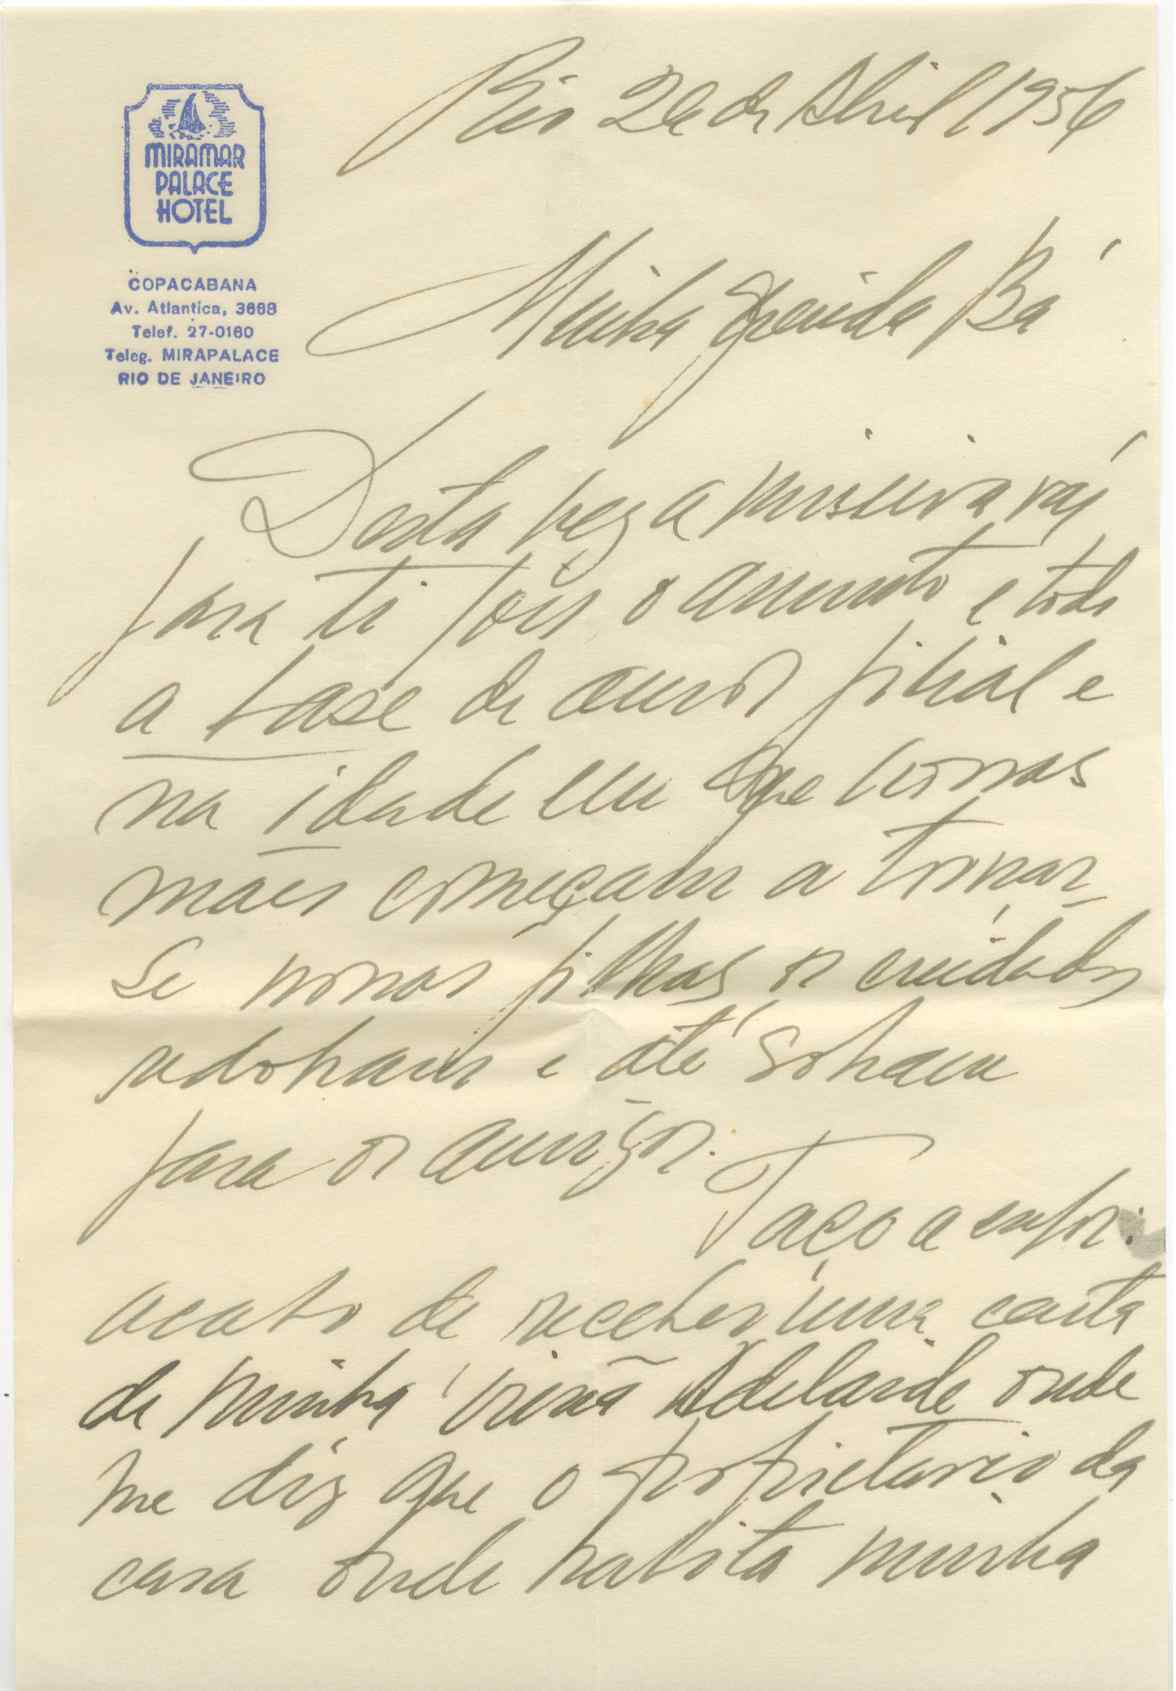 MIRAMAR
PALACE
HOTEL
COPACABANA
Av. Atlantica, 3688
Telef. 27-0160
Teleg. MIRAPALACE
RIO DE JANEIRO
Rio 26 de Abril 1956
Minha querida Bá
Desta vez a missiva vai
para ti pois o assunto e todo
a base de amor filial e
na idade em que nossas
mães começam a tornar-
se nossas filhas os cuidados
redobram e até sobram
para os amigos.
Faço a expôr:
acabo de receber uma carta
de minha irmã Adelaide onde
me diz que o proprietario da
casa onde habita minha